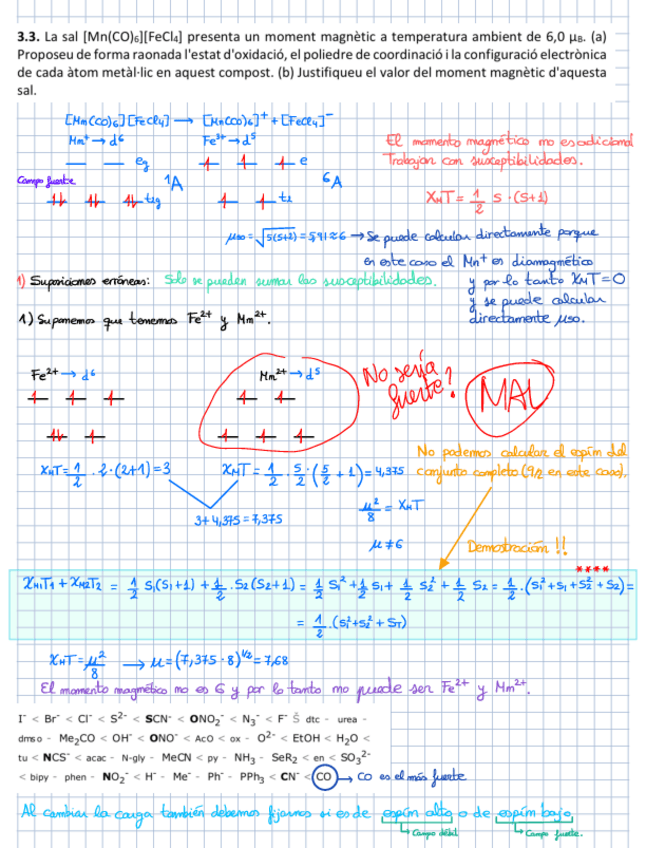 3.3. La sal [Mn(CO)₆][FeCl₄] presenta un moment magnètic a temperatura ambient de 6,0 μB. (a)
Proposeu de forma raonada l'estat d'oxidació, el poliedre de coordinació i la configuració electrònica
de cada àtom metàl·lic en aquest compost. (b) Justifiqueu el valor del moment magnètic d'aquesta
sal.
[Mn(CO)₆][FeCl₄] → [Mn(CO)₆]⁺ + [FeCl₄]⁻
Mn⁺ → d⁶ Fe³⁺ → d⁵
El momento magnético no es adicional
Trabajan con susceptibilidades.
eg e
Campo fuerte ¹A ⁶A
t2g t2
XMT = 1/2 S·(S+1)
μso = √5(5+2) = 5,91 ≈ 6 → Se puede calcular directamente porque
en este caso el Mn⁺ es diamagnético
y por lo tanto XMT = 0
y se puede calcular
directamente μso.
1) Suposiciones erróneas: Solo se pueden sumar las susceptibilidades.
1) Suponemos que tenemos Fe²⁺ y Mn²⁺.
Fe²⁺ → d⁶ Mn²⁺ → d⁵
No sería
fuerte?
MAL
XMT = 1/2 · 2·(2+1) = 3 XMT = 1/2 · 5/2 · (5/2 + 1) = 4,375
3 + 4,375 = 7,375
No podemos calcular el espín del
conjunto completo (9/2 en este caso).
μ²/8 = XMT
μ ≠ 6
Demostración !!
****
XM1T1 + XM2T2 = 1/2 S1(S1+1) + 1/2 · S2(S2+1) = 1/2 S1² + 1/2 S1 + 1/2 S2² + 1/2 S2 = 1/2 · (S1² + S1 + S2² + S2) =
= 1/2 · (S1² + S2² + ST)
XMT = μ²/8 → μ = (7,375 · 8)^1/2 = 7,68
El momento magnético no es 6 y por lo tanto no puede ser Fe²⁺ y Mn²⁺.
I⁻ < Br⁻ < Cl⁻ < S²⁻ < SCN⁻ < ONO₂⁻ < N₃⁻ < F⁻ Š dtc - urea -
dmso - Me₂CO < OH⁻ < ONO⁻ < AcO < ox - O²⁻ < EtOH < H₂O <
tu < NCS⁻ < acac - N-gly - MeCN < py - NH₃ - SeR₂ < en < SO₃²⁻
< bipy - phen - NO₂⁻ < H⁻ - Me⁻ - Ph⁻ - PPh₃ < CN⁻ < CO → CO es el más fuerte
Al cambiar la carga también debemos fijarnos si es de espín alto o de espín bajo.
Campo débil Campo fuerte.